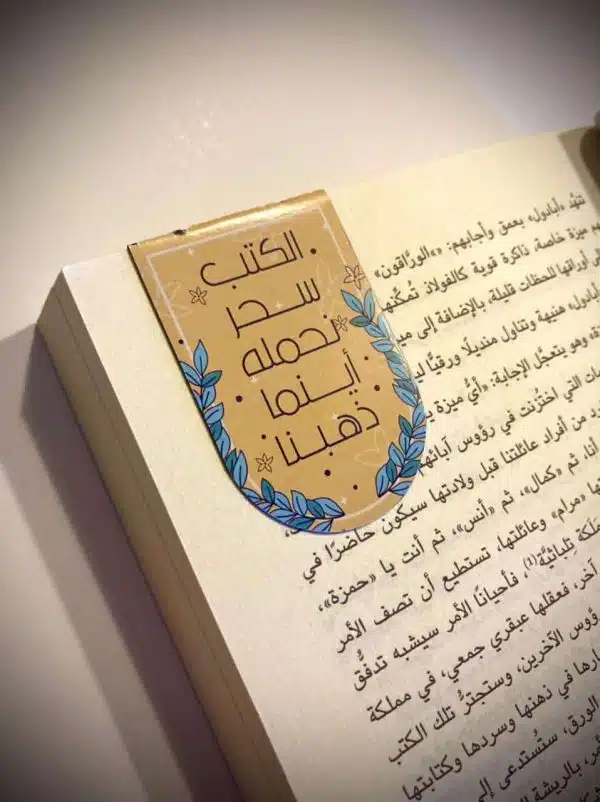 الكتب
سحر
نحمله
أينما
ذهبنا
تنهّد «أبادول» بعمق وأجابهم: «»الورَّاقون«
هم ميزة خاصة، ذاكرة قوية كالفولاذ تُمكِّنها
أوراقها للحظات قليلة، بالإضافة إلى
«أبادول» هنيهة وتناول منديلًا ورقيًّا
وهو يتعجَّل الإجابة: «أيُّ ميزة
التي اختُزنت في رؤوس آبائهم
من أفراد عائلتنا قبل ولادتها سيكون حاضرًا في
أنا، ثم «كمال»، ثم «أنس»، ثم أنت يا «حمزة»،
«مرام» وعائلتها، تستطيع أن تصف الأمر
تِلباثيَّة(١)، فأحيانًا الأمر سيشبه تدفُّق
آخر، فعقلها عبقري جمعي، في مملكة
رؤوس الآخرين، وستجترُّ تلك الكتب
في ذهنها وسردها وكتابتها
الورق، ستُستدعى إلى
بالريشة